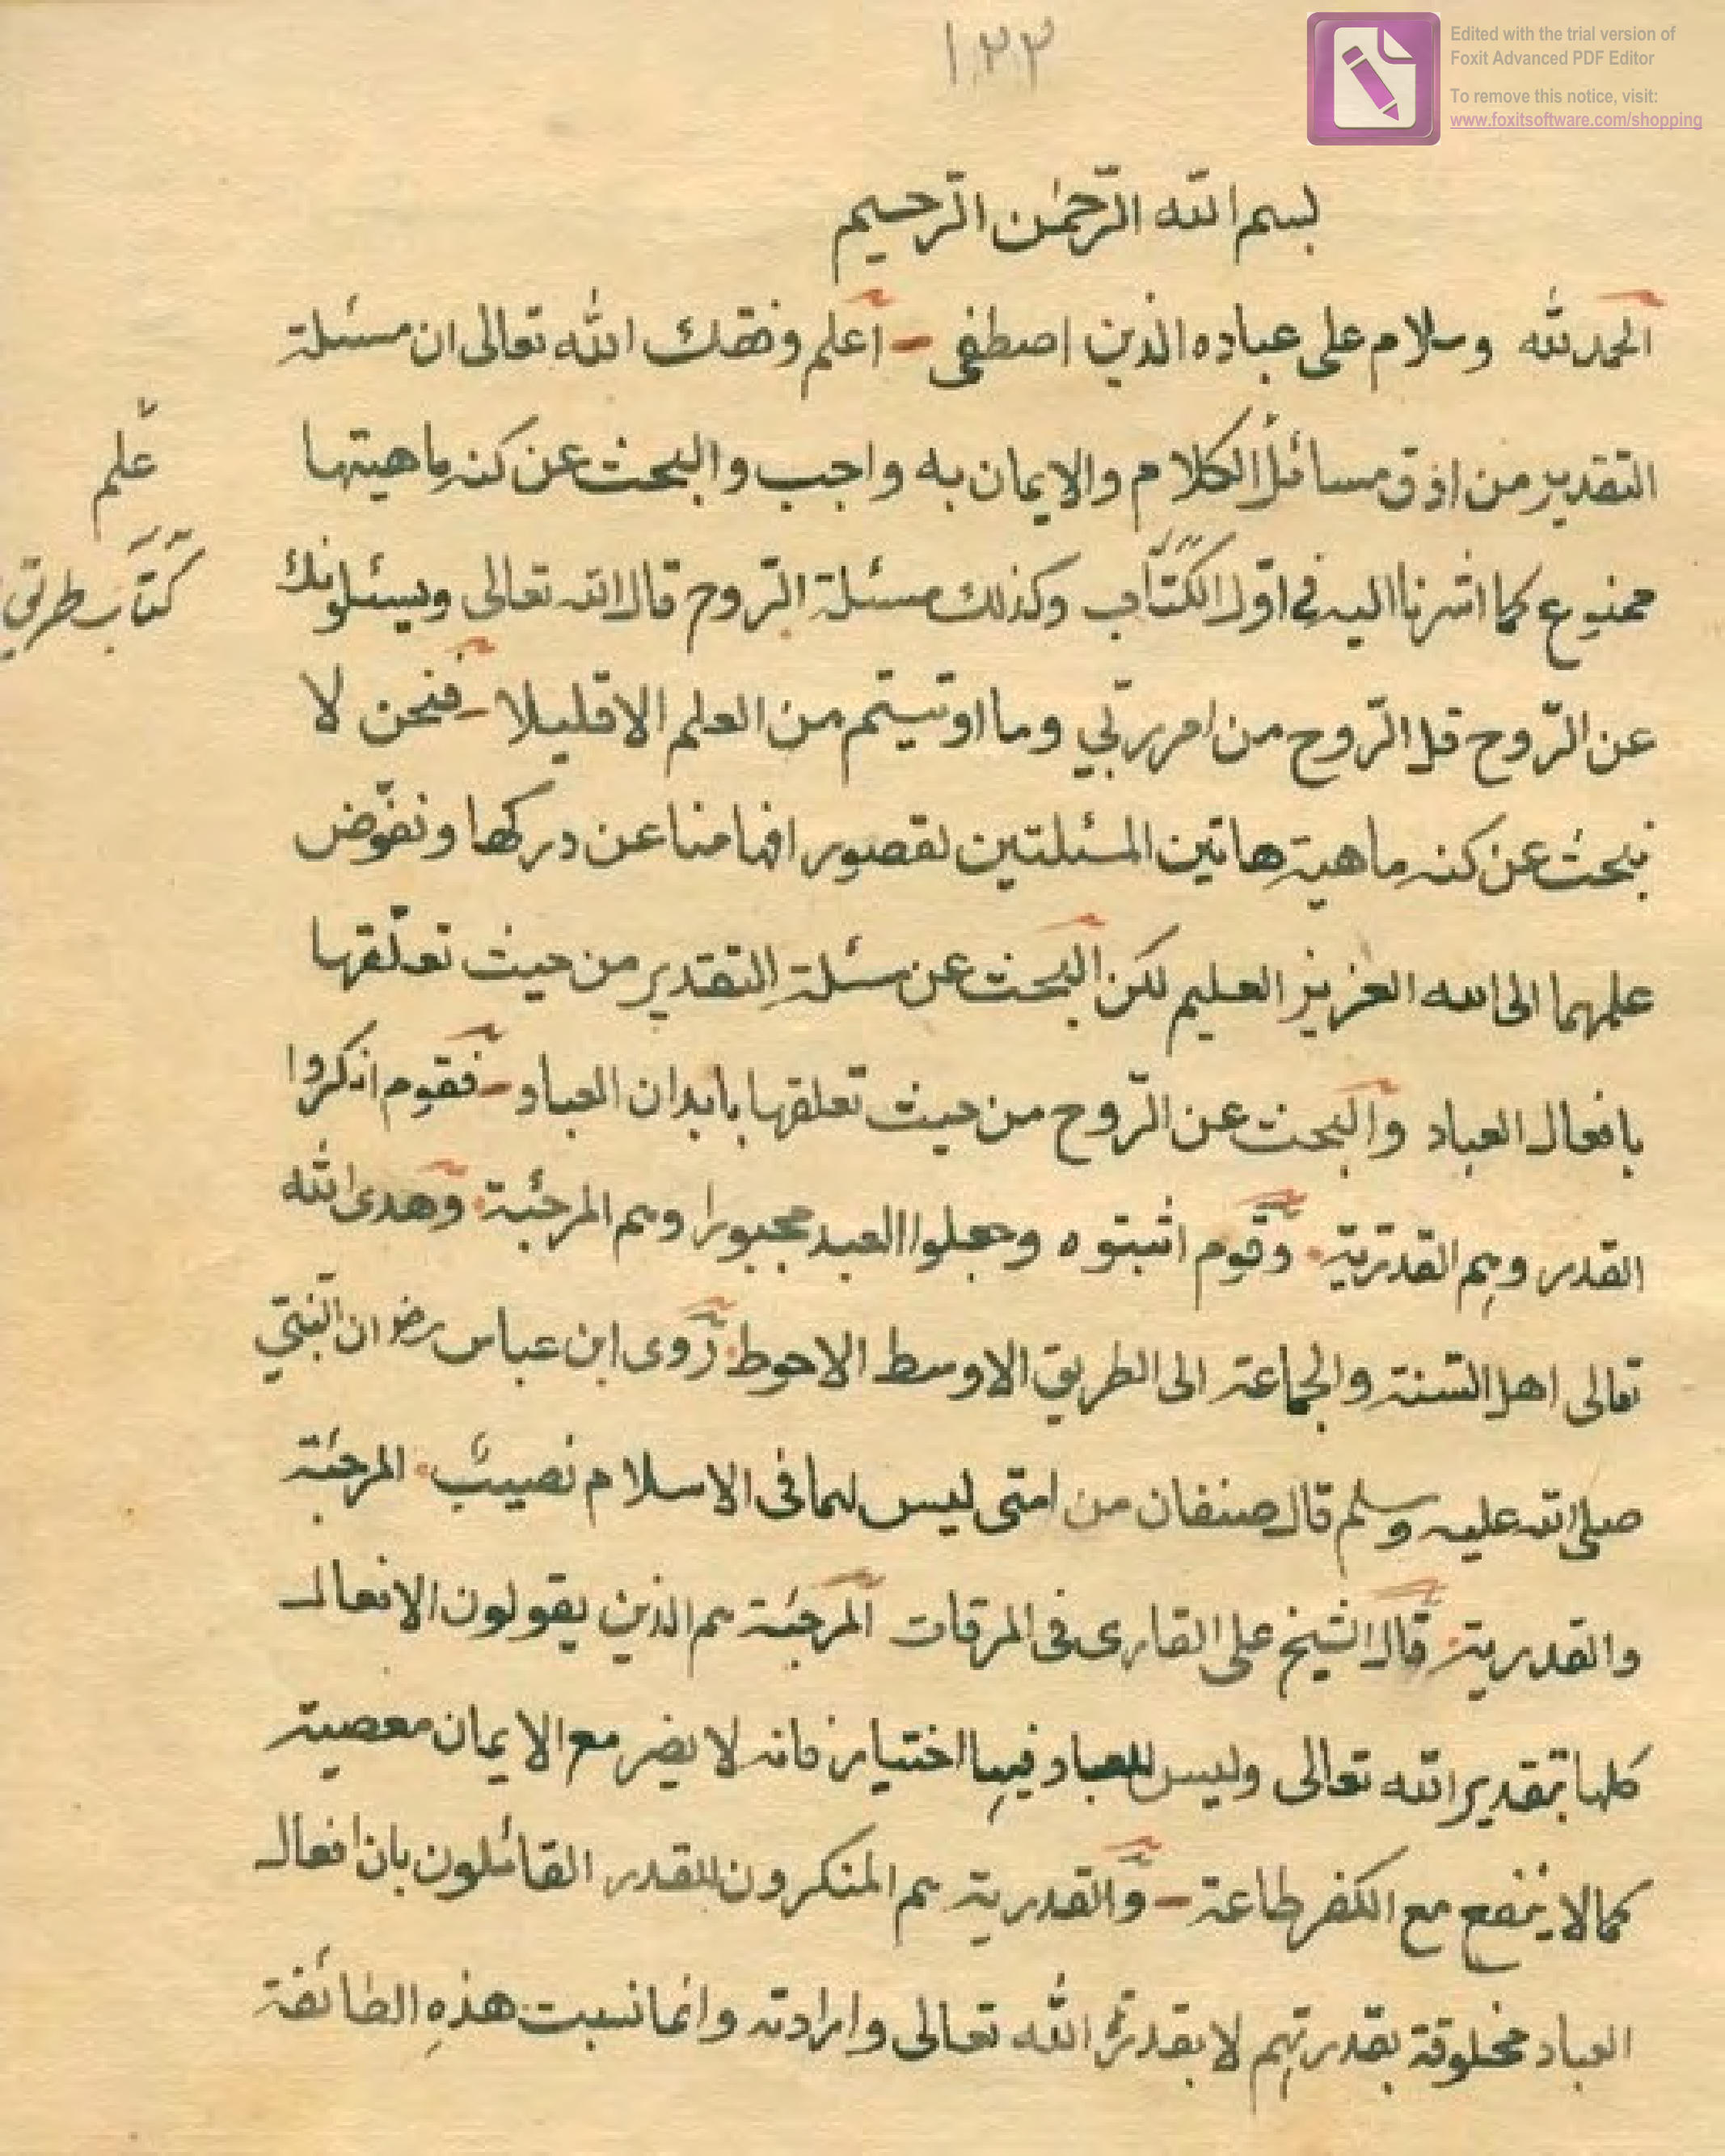 ١٢٣
Edited with the trial version of
Foxit Advanced PDF Editor
To remove this notice, visit:
www.foxitsoftware.com/shopping
بسم الله الرّحمٰن الرّحيم
الحمد لله وسلام على عباده الذين اصطفى - اعلم وفقك الله تعالى ان مسئلة
التقدير من ادق مسائل الكلام والايمان به واجب والبحث عن كنه ماهيتها
ممنوع كما اشرنا اليه فى اوّل الكتاب وكذلك مسئلة الرّوح قال الله تعالى ويسئلونك
عن الرّوح قل الرّوح من امر ربّي وما اوتيتم من العلم الا قليلا - فنحن لا
نبحث عن كنه ماهية هاتين المسئلتين لقصور افهامنا عن دركها ونفوّض
علمهما الى الله العزيز العليم لكن البحث عن مسئلة التقدير من حيث تعلّقها
بافعال العباد والبحث عن الرّوح من حيث تعلقها بابدان العباد - فقوم انكروا
القدر وهم القدريّة. وقوم اثبتوه وجعلوا العبد مجبورا وهم المرجئة. وهدى الله
تعالى اهل السّنة والجماعة الى الطريق الاوسط الاحوط. روى ابن عباس رضـ ان النبيّ
صلى الله عليه وسلم قال صنفان من امتى ليس لهما فى الاسلام نصيب. المرجئة
والقدرية. قال الشيخ على القارى فى المرقات المرجئة هم الذين يقولون الافعال
كلها بتقدير الله تعالى وليس للعباد فيها اختيار فانه لا يضر مع الايمان معصية
كما لا ينفع مع الكفر طاعة - والقدرية هم المنكرون للقدر القائلون بان افعال
العباد مخلوقة بقدرتهم لا بقدرة الله تعالى وارادته وانما نسبت هذهِ الطائفة
علم
كتاب